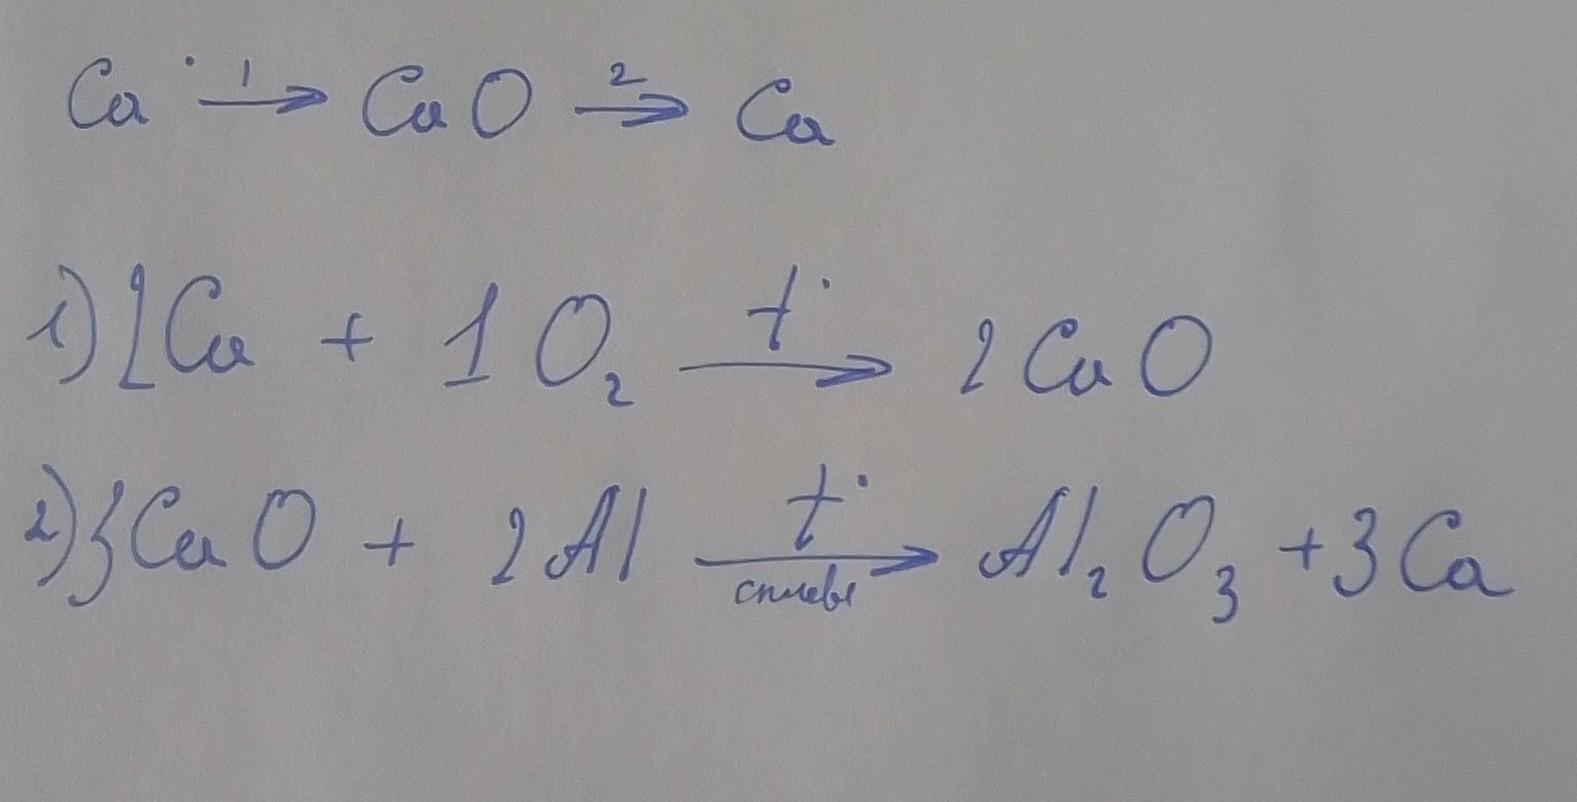 Ca 1→ CaO 2→ Ca
1) 2Ca + 1O₂ t°→ 2CaO
2) 3CaO + 2Al t°→ Al₂O₃ + 3Ca